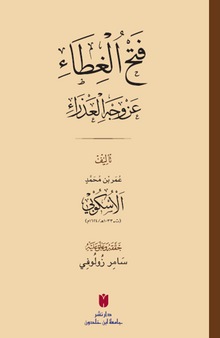 فَتْحُ الْغِطَاءِ
عَنْ وَجْهِ الْعَذْرَاءِ
تَأْلِيْفُ
عُمَر بْن مُحَمَّد
الْأُسْكُوبِيّ
حَقَّقَهُ وَقَدَّمَ لَهُ
سَامِر رُولُوفِي
دار نشر
جامعة ابن خلدون